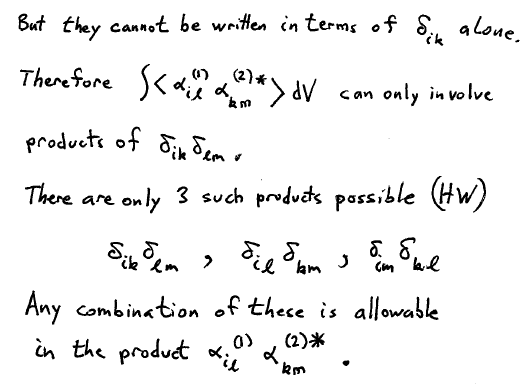 But they cannot be written in terms of δ_ik alone.
Therefore ∫< α_il^(1) α_km^(2)* > dV can only involve
products of δ_ik δ_lm .
There are only 3 such products possible (HW)
δ_ik δ_lm , δ_il δ_km , δ_im δ_kl
Any combination of these is allowable
in the product α_il^(1) α_km^(2)* .